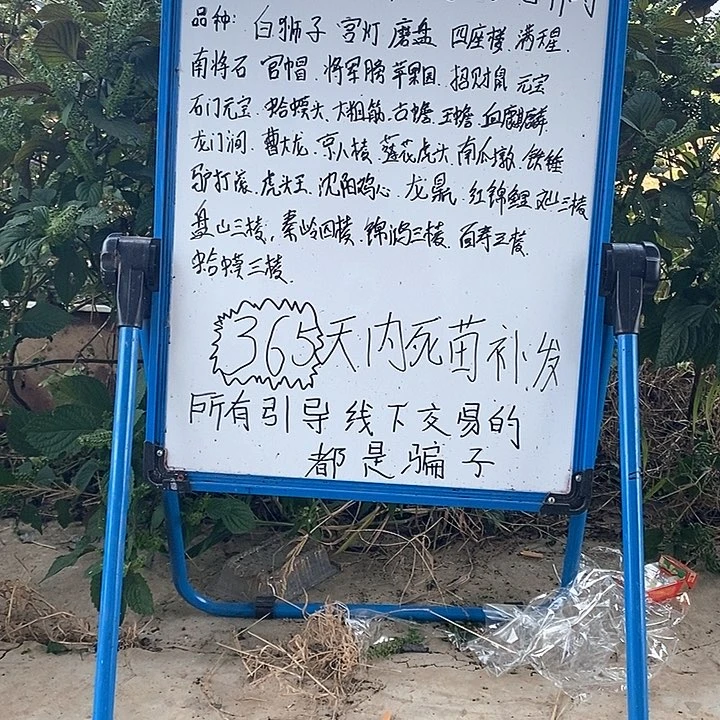 品种: 白狮子 宫灯 磨盘 四座楼 满天星.
南将石 官帽. 将军膀 苹果园. 招财鼠 元宝
石门元宝. 蛤蟆头. 大粗筋. 古蟾. 王蟾. 血麒麟.
龙门涧. 曹大龙. 京八棱 莲花虎头. 南瓜墩. 铁锤
驴打滚. 虎头王. 沈阳鸡心. 龙鼎. 红锦鲤 三棱
盘山三棱. 秦岭四棱. 锦鸿三棱. 百寿五棱.
蛤蟆三棱.
365天内死苗补发
所有引导线下交易的
都是骗子